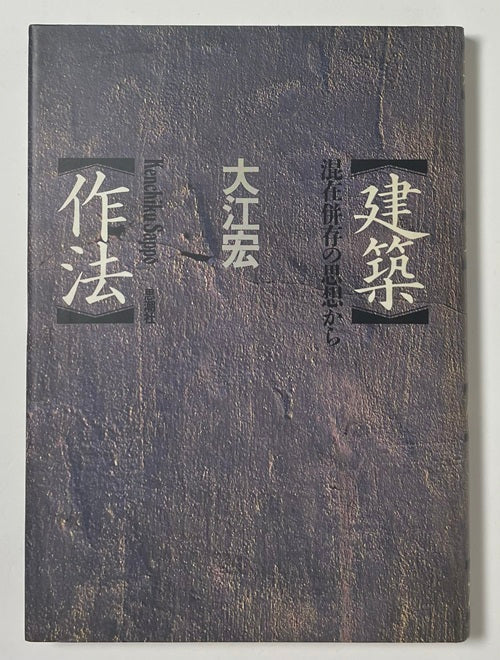 【建築】
混在併存の思想から
大江宏
【作法】
Kenchiku Sapoy
思潮社